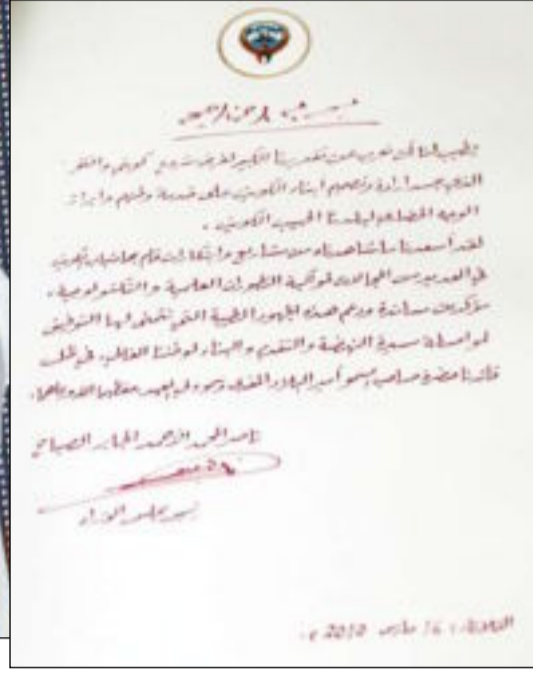 بسم الله الرحمن الرحيم
يطيب لنا أن نعرب عن تقديرنا الكبير لفريق تصنيع كويتي والفكر
الذي جسد إرادة وتصميم أبناء الكويت على خدمة وطنهم وإبراز
الوجه الحضاري لبلدنا الحبيب الكويت .
لقد أسعدنا ما شاهدناه من مشاريع وابتكارات قام بها شباب الكويت
في العديد من المجالات لمواكبة التطورات العلمية والتكنولوجية .
مؤكدين مساندة ودعم هذه الجهود الطيبة التي نتمنى لها التوفيق
لمواصلة مسيرة النهضة والتقدم والبناء لوطننا الغالي . في ظل
قائدنا حضرة صاحب السمو أمير البلاد المفدى وسمو ولي العهد حفظهما الله ورعاهما .
ناصر المحمد الأحمد الجابر الصباح
رئيس مجلس الوزراء
الثلاثاء : 16 مارس 2010 م .